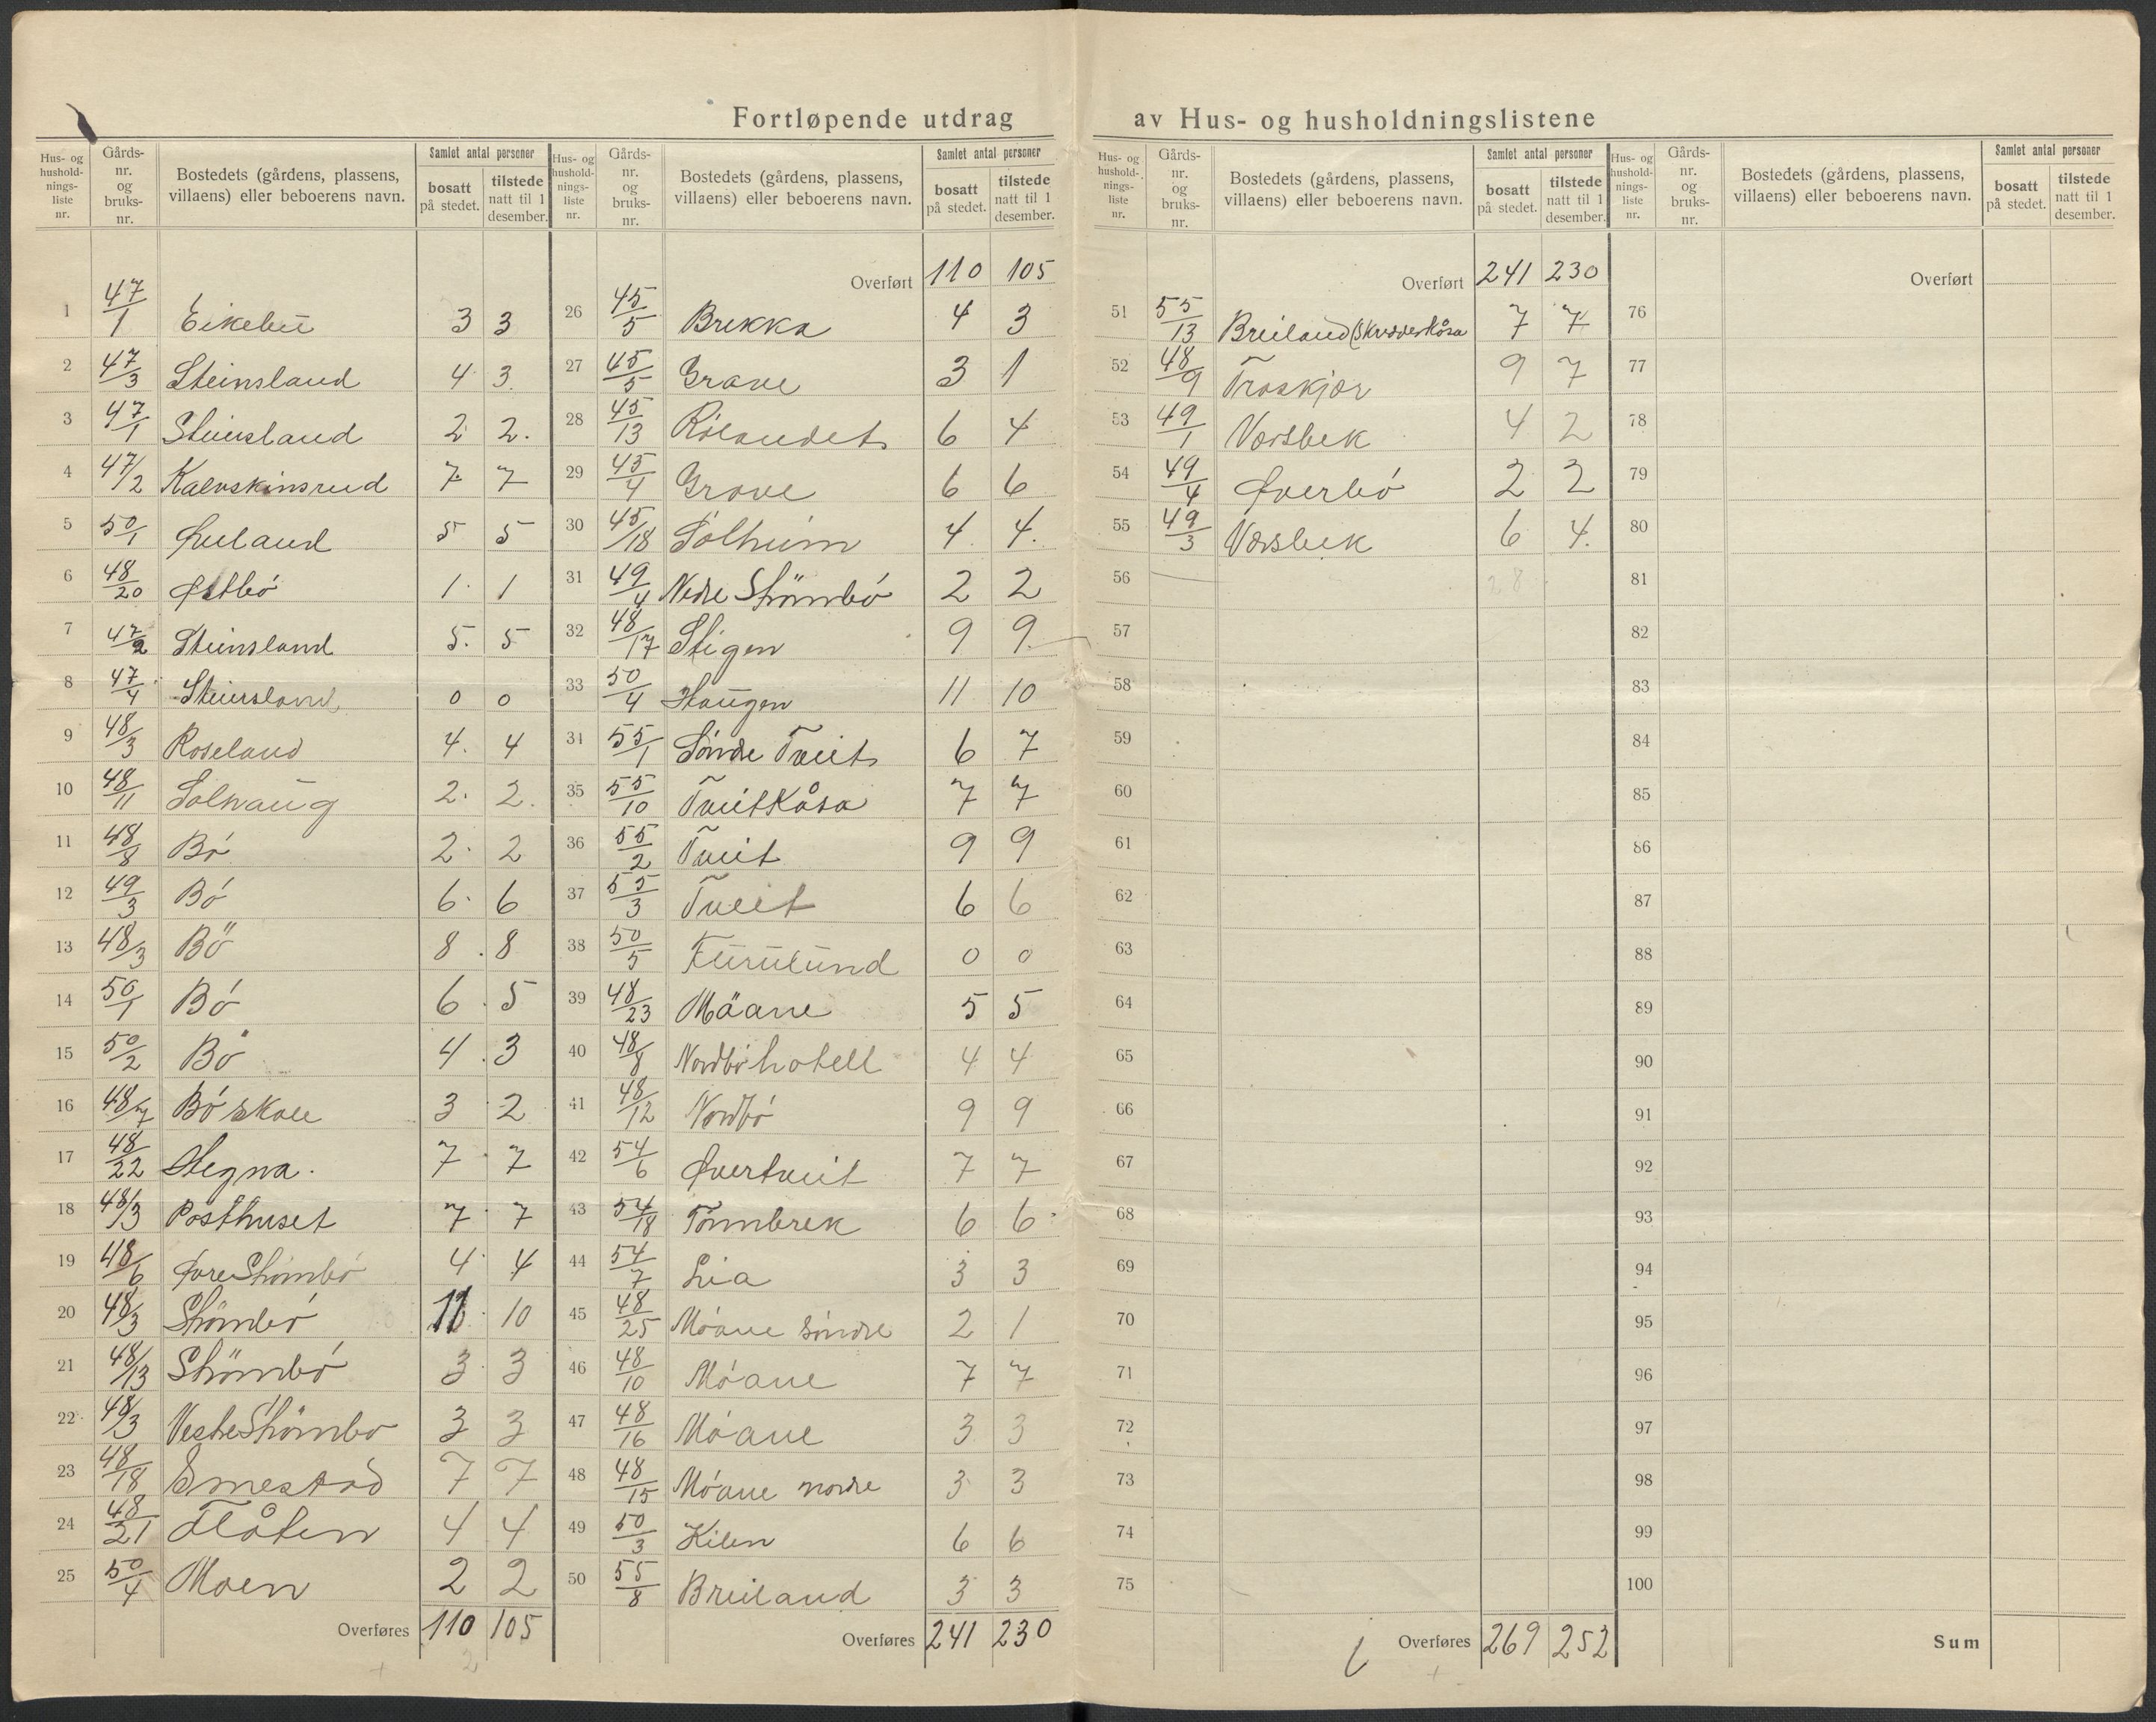 Fortløpende utdrag av Hus- og husholdningslistene
Hus- og husholdnings- liste nr. | Gårds- nr. og bruks- nr. | Bostedets (gårdens, plassens, villaens) eller beboerens navn. | Samlet antal personer bosatt på stedet. | tilstede natt til 1 desember.
1 47/1 Eikebu 3 3
2 47/3 Steinsland 4 3
3 47/1 Steinsland 2 2.
4 47/2 Kalvskinsrud 7 7
5 50/1 Øuland 5 5
6 48/20 Østbö 1 1
7 47/2 Steinsland 5. 5
8 47/4 Steinsland 0 0
9 48/3 Roseland 4. 4
10 48/11 Solhaug 2. 2.
11 48/8 Bö 2 2
12 49/3 Bö 6 6
13 48/3 Bö 8 8
14 50/1 Bö 6 5
15 50/2 Bö 4 3
16 48/7 Bö skole 3 2
17 48/22 Hegna. 7 7
18 48/3 Posthuset 7 7
19 48/6 Øvre Strömbö 4 4
20 48/3 Strömbö 11 10
21 48/13 Strömbö 3 3
22 48/3 Vestre Strömbö 3 3
23 48/18 Smestad 7 7
24 48/21 Flåten 4 4
25 50/4 Moen 2 2
Overføres 110 105
Hus- og husholdnings- liste nr. | Gårds- nr. og bruks- nr. | Bostedets (gårdens, plassens, villaens) eller beboerens navn. | Samlet antal personer bosatt på stedet. | tilstede natt til 1 desember.
Overført 110 105
26 45/5 Brekka 4 3
27 45/5 Grave 3 1
28 45/13 Rölandet 6 4
29 45/4 Grove 6 6
30 45/18 Solheim 4 4.
31 49/4 Nedre Strömbö 2 2
32 48/17 Stigen 9 9
33 50/4 Haugen 11 10
34 55/1 Söndre Tveit 6 7
35 55/10 Tveitkåsa 7 7
36 55/2 Tveit 9 9
37 55/3 Tveit 6 6
38 50/5 Furulund 0 0
39 48/23 Möane 5 5
40 48/8 Nordbö hotell 4 4
41 48/12 Nordbö 9 9
42 54/6 Øvertveit 7 7
43 54/18 Tömmbrek 6 6
44 54/7 Lia 3 3
45 48/25 Möane söndre 2 1
46 48/10 Möane 7 7
47 48/16 Möane 3 3
48 48/15 Möane nordre 3 3
49 50/3 Kilen 6 6
50 55/8 Breiland 3 3
Overføres 241 230
Hus- og husholdnings- liste nr. | Gårds- nr. og bruks- nr. | Bostedets (gårdens, plassens, villaens) eller beboerens navn. | Samlet antal personer bosatt på stedet. | tilstede natt til 1 desember.
Overført 241 230
51 55/13 Breiland (Skredderkåsa 7 7
52 48/9 Traskjær 9 7
53 49/1 Versbek 4 2
54 49/4 Øverbö 2 2
55 49/3 Versbek 6 4.
56 28
57
58
59
60
61
62
63
64
65
66
67
68
69
70
71
72
73
74
75
Overføres 269 252
Hus- og husholdnings- liste nr. | Gårds- nr. og bruks- nr. | Bostedets (gårdens, plassens, villaens) eller beboerens navn. | Samlet antal personer bosatt på stedet. | tilstede natt til 1 desember.
Overført
76
77
78
79
80
81
82
83
84
85
86
87
88
89
90
91
92
93
94
95
96
97
98
99
100
Sum